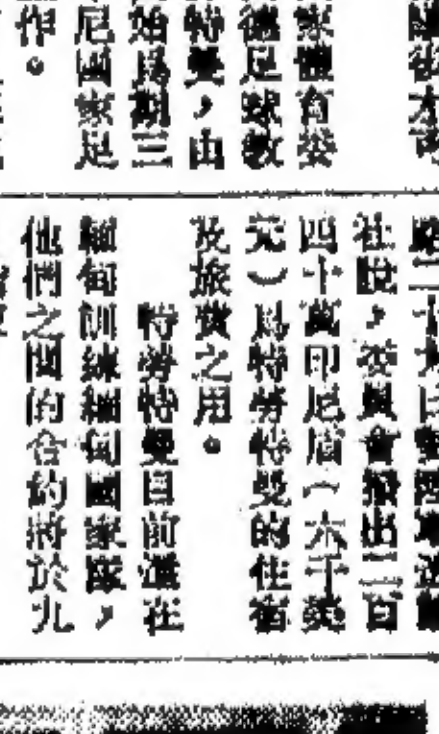 家體育發
德足球教
特曼，由
始爲期三
尼國家足
作。
社說，發展會撥出二百
四十萬印尼盾（六千美
元）爲特勞特曼的住宿
及旅費之用。
特勞特曼目前還在
緬甸訓練緬甸國家隊，
他們之間的合約將於九